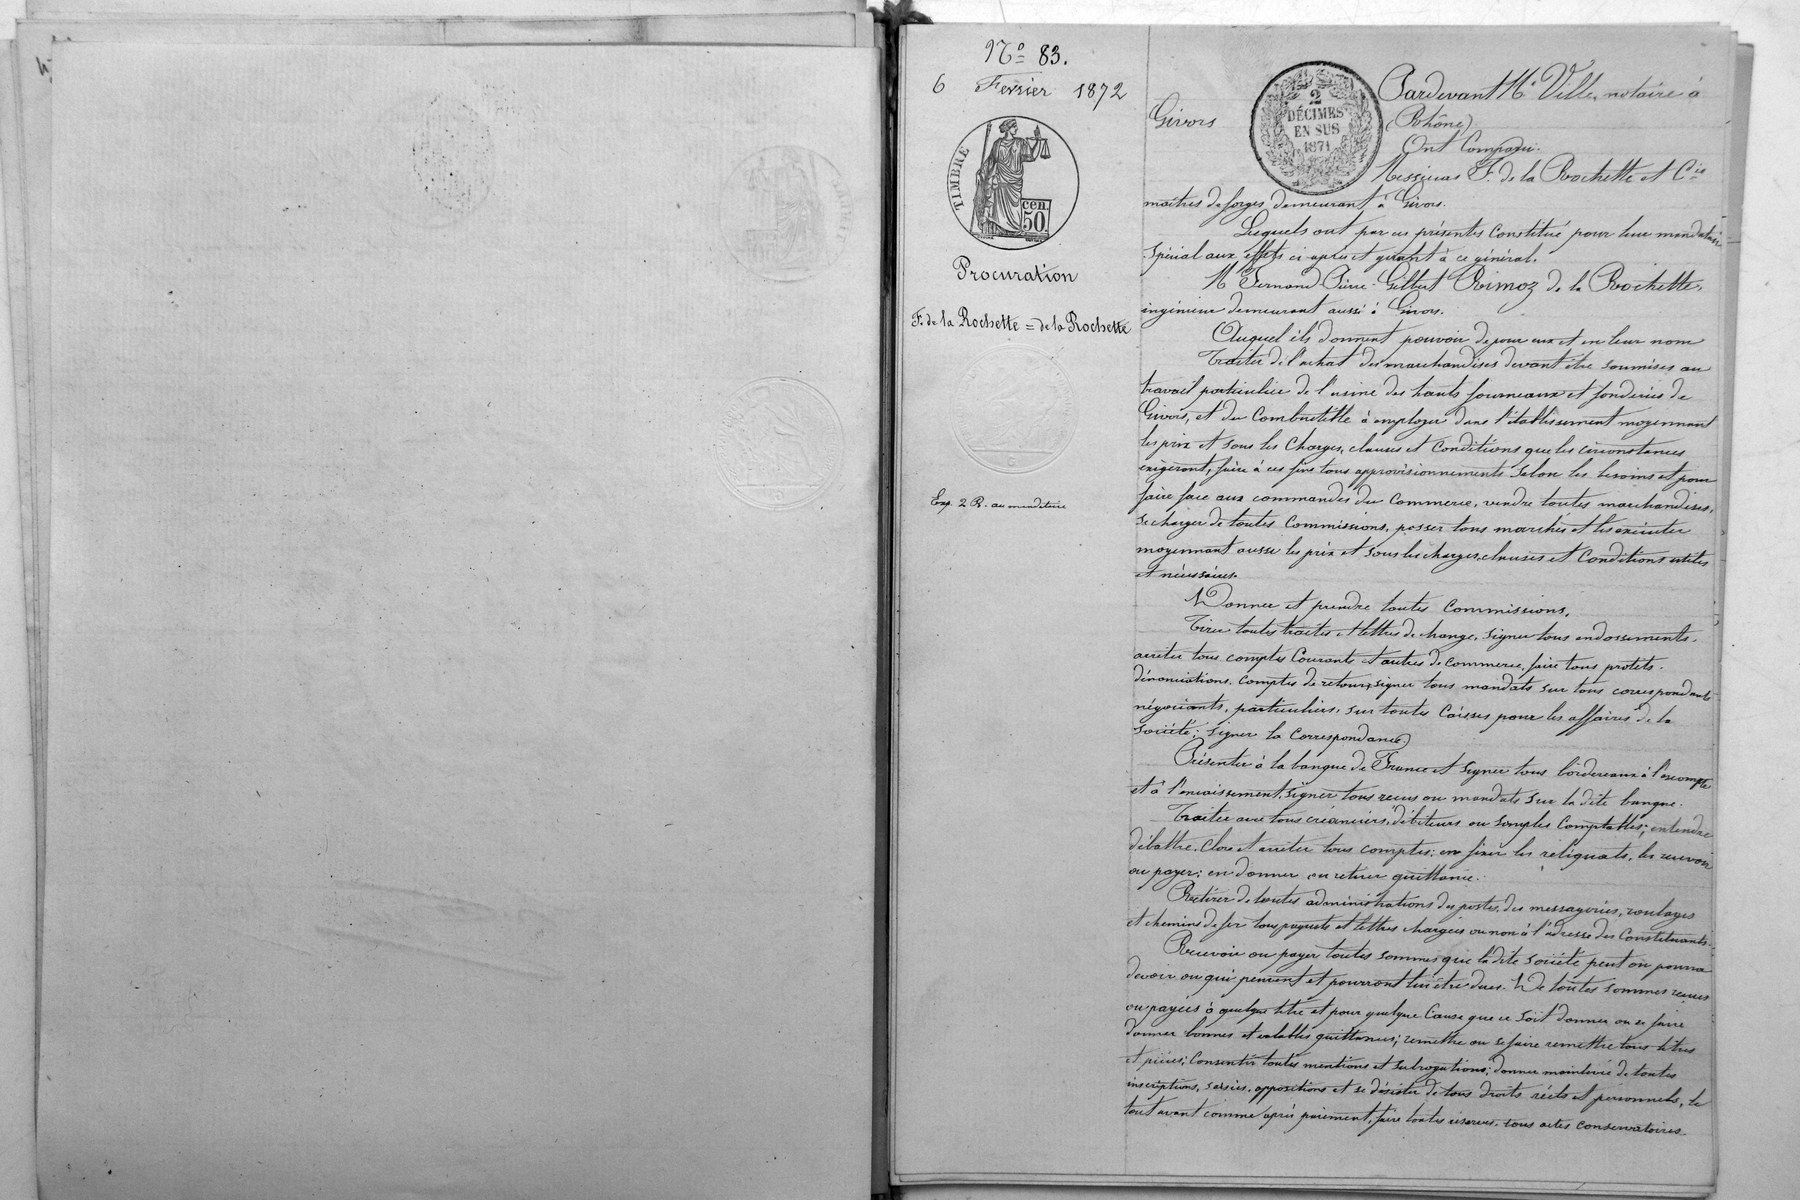 N° 83.
6 Février 1872
TIMBRE
cen.
50.
Procuration
F. de la Rochette = de la Rochette
Exp. 2 R. au mandataire
2
DÉCIMES
EN SUS
1871
Pardevant Me Ville, notaire à
Givors (Rhône)
Ont Comparu.
Messieurs F. de la Rochette et Cie
maîtres de forges demeurant à Givors.
Lesquels ont par ces présentes Constitué pour leur mandataire
Spécial aux effets ci-après et quant à ce général.
Mr Fernand Pierre-Gilbert Rimoz de la Rochette,
ingénieur demeurant aussi à Givors.
Auquel ils donnent pouvoir de pour eux et en leur nom
Traiter de l'achat des marchandises devant être soumises au
travail particulier de l'usine des hauts fourneaux et fonderies de
Givors, et du Combustible à employer dans l'établissement moyennant
les prix et sous les Charges, clauses et Conditions que les circonstances
exigeront, faire à ces fins tous approvisionnements selon les besoins et pour
faire face aux commandes du Commerce, vendre toutes marchandises,
se charger de toutes Commissions, passer tous marchés et les exécuter
moyennant aussi les prix et sous les charges, clauses et Conditions utiles
et nécessaires.
Donner et prendre toutes Commissions.
Tirer toutes traites et lettres de change, signer tous endossements,
arrêter tous comptes Courants et autres de commerce, faire tous protêts.
dénonciations. Comptes de retour, signer tous mandats sur tous correspondants
négociants, particuliers, sur toutes Caisses pour les affaires de la
société; signer la Correspondance.
Présenter à la banque de France et signer tous bordereaux à l'escompte
et à l'encaissement, signer tous reçus ou mandats sur la dite banque.
Traiter avec tous créanciers, débiteurs ou simples Comptables; entendre
débattre, Clore et arrêter tous comptes; en fixer les reliquats, les recevoir
ou payer; en donner ou retirer quittance.
Retirer de toutes administrations des postes, des messageries, roulages
et chemins de fer tous paquets et lettres chargées ou non à l'adresse des Constituants.
Recevoir ou payer toutes sommes que la dite société peut ou pourra
devoir ou qui peuvent et pourront lui être dues. De toutes sommes reçues
ou payées à quelque titre et pour quelque Cause que ce soit donner ou se faire
donner bonnes et valables quittances; remettre ou se faire remettre tous titres
et pièces; Consentir toutes mentions et subrogations; donner mainlevée de toutes
inscriptions, saisies, oppositions et se désister de tous droits réels et personnels, le
tout avant comme après paiement, faire toutes réserves, tous actes conservatoires.